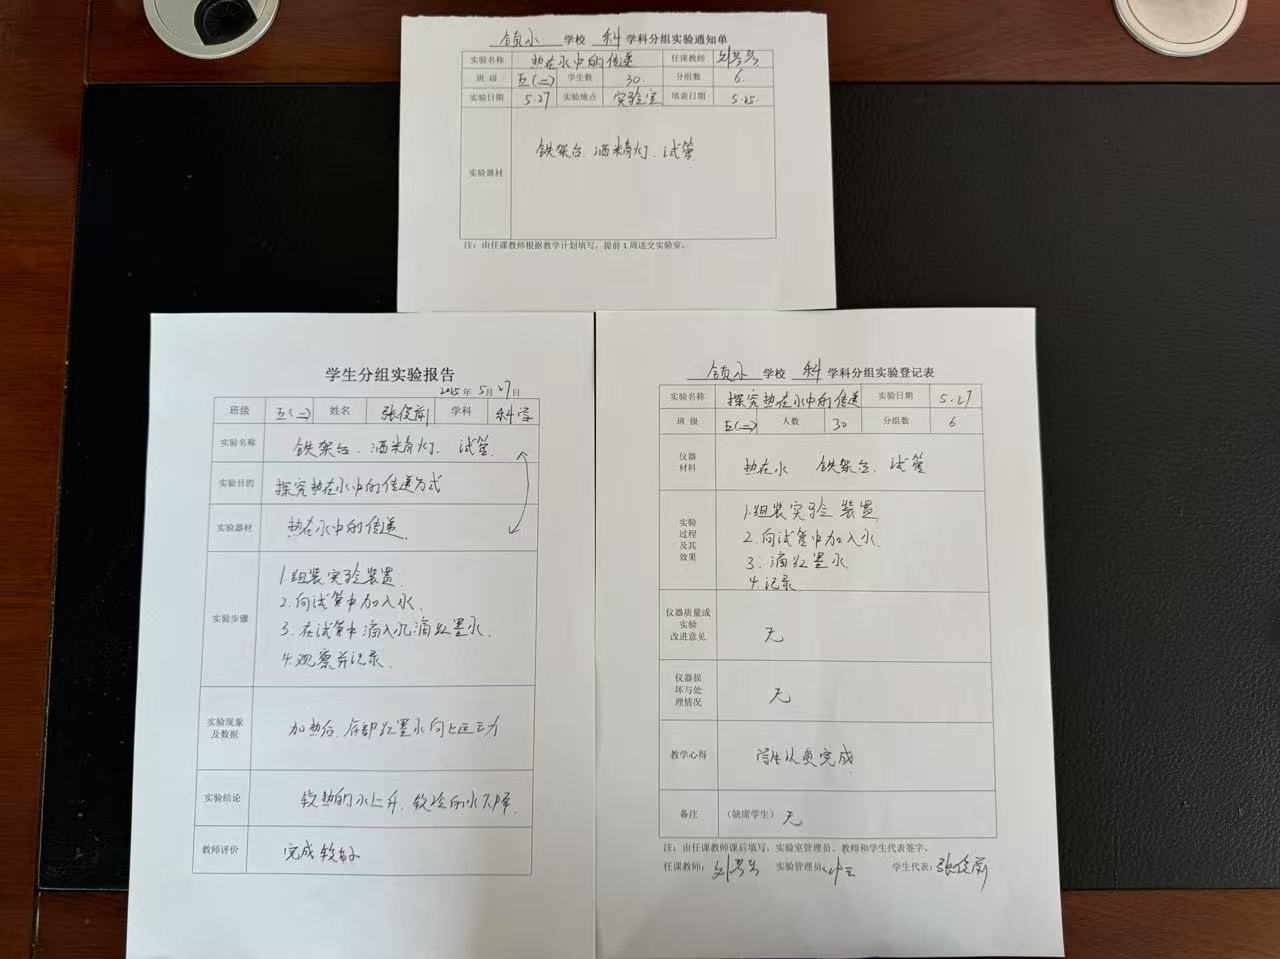 镇小 学校 科 学科分组实验通知单
实验名称 热在水中的传递 任课教师
班 级 五(二) 学生数 30. 分组数 6.
实验日期 5.27 实验地点 实验室 填表日期 5.25.
实验器材 铁架台、酒精灯、试管
注：由任课教师根据教学计划填写，提前1周送交实验室。
学生分组实验报告
2025年 5月 27日
班级 五(二) 姓名 张俊前 学科 科学
实验名称 铁架台、酒精灯、试管.
实验目的 探究热在水中的传递方式
实验器材 热在水中的传递.
实验步骤
1.组装实验装置.
2.向试管中加入水.
3.在试管中滴入几滴红墨水.
4.观察并记录.
实验现象
及数据
加热后,底部红墨水向上运动
实验结论 较热的水上升,较冷的水下降.
教师评价 完成较好
镇小 学校 科 学科分组实验登记表
实验名称 探究热在水中的传递 实验日期 5.27
班 级 五(二) 人数 30 分组数 6
仪器
材料
热在水 铁架台、试管
实验
过程
及其
效果
1.组装实验装置
2.向试管中加入水.
3.滴红墨水.
4.记录.
仪器质量或
实验
改进意见
无
仪器损
坏与处
理情况
无
教学心得 学生认真完成
备注 （缺席学生）无
注：由任课教师课后填写，实验室管理员、教师和学生代表签字。
任课教师： 实验管理员： 学生代表：张俊前